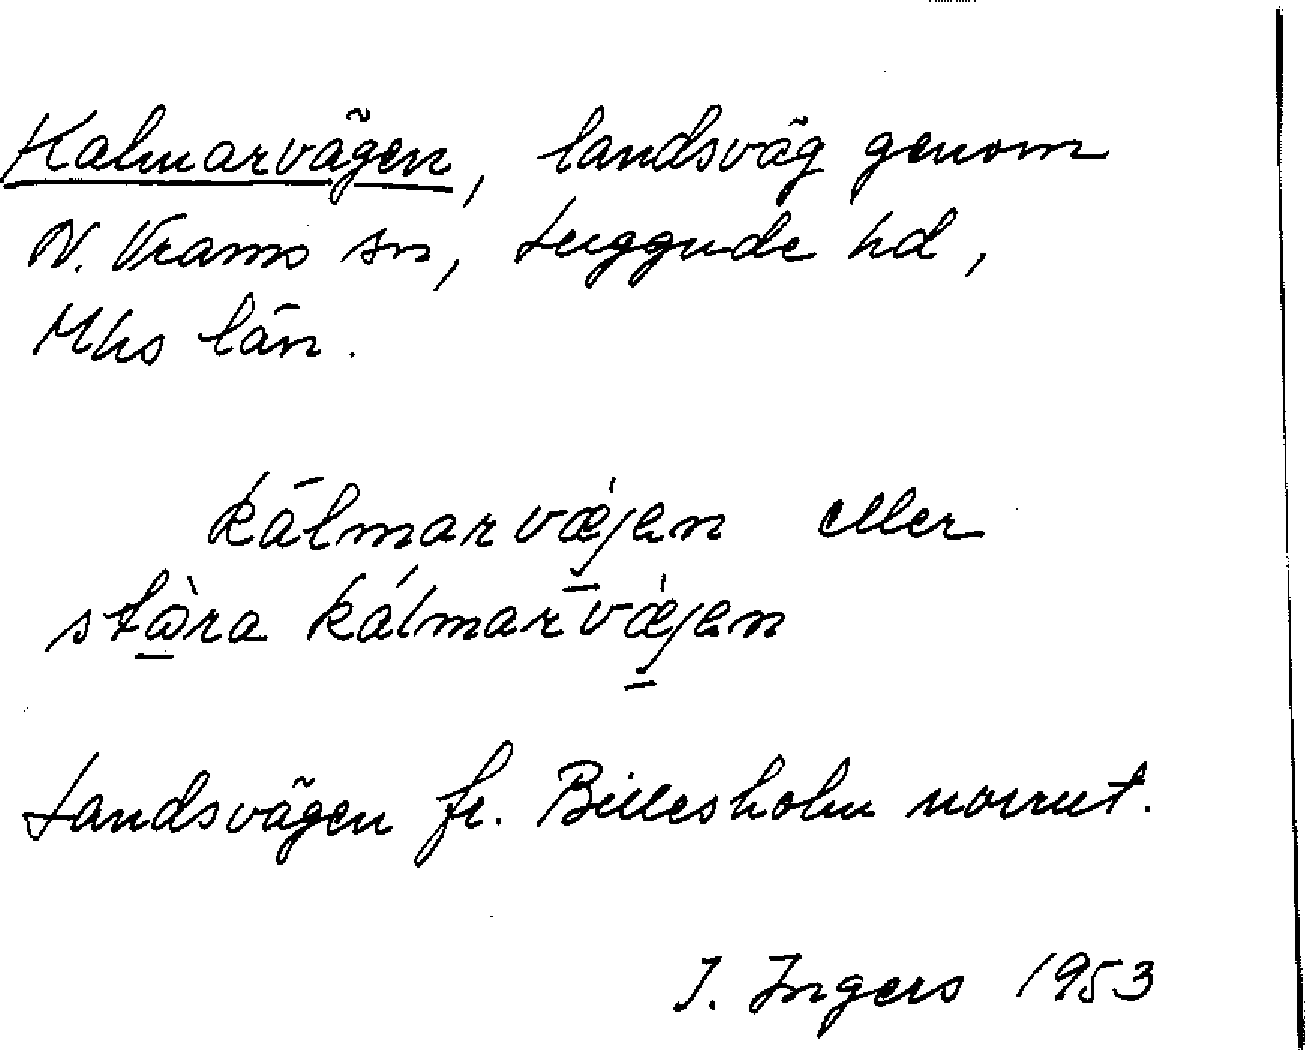 Kalmarvägen, landsväg genom
N. Vrams sn, Luggude hd,
Mhs län.
kálmarvæ̀jen eller
stὼra kálmarvæ̀jen
Landsvägen fr. Billesholm norrut.
I. Ingers 1953